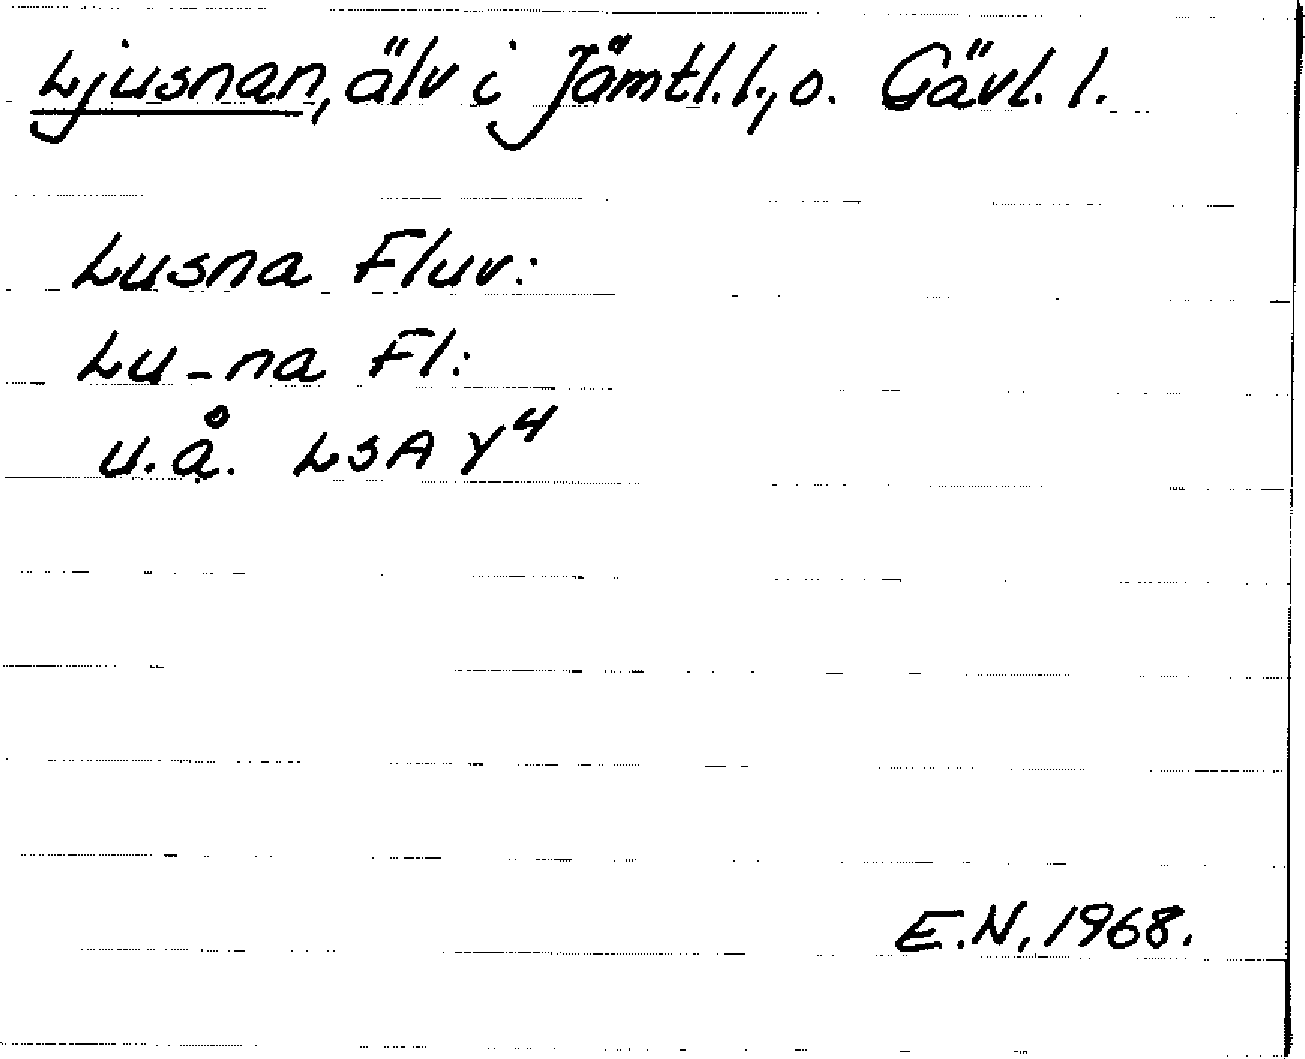 Ljusnan, älv i Jämtl. l., o. Gävl. l.
Lusna Fluv:
Lu-na Fl:
u.å. LSA Y4
E.N, 1968.